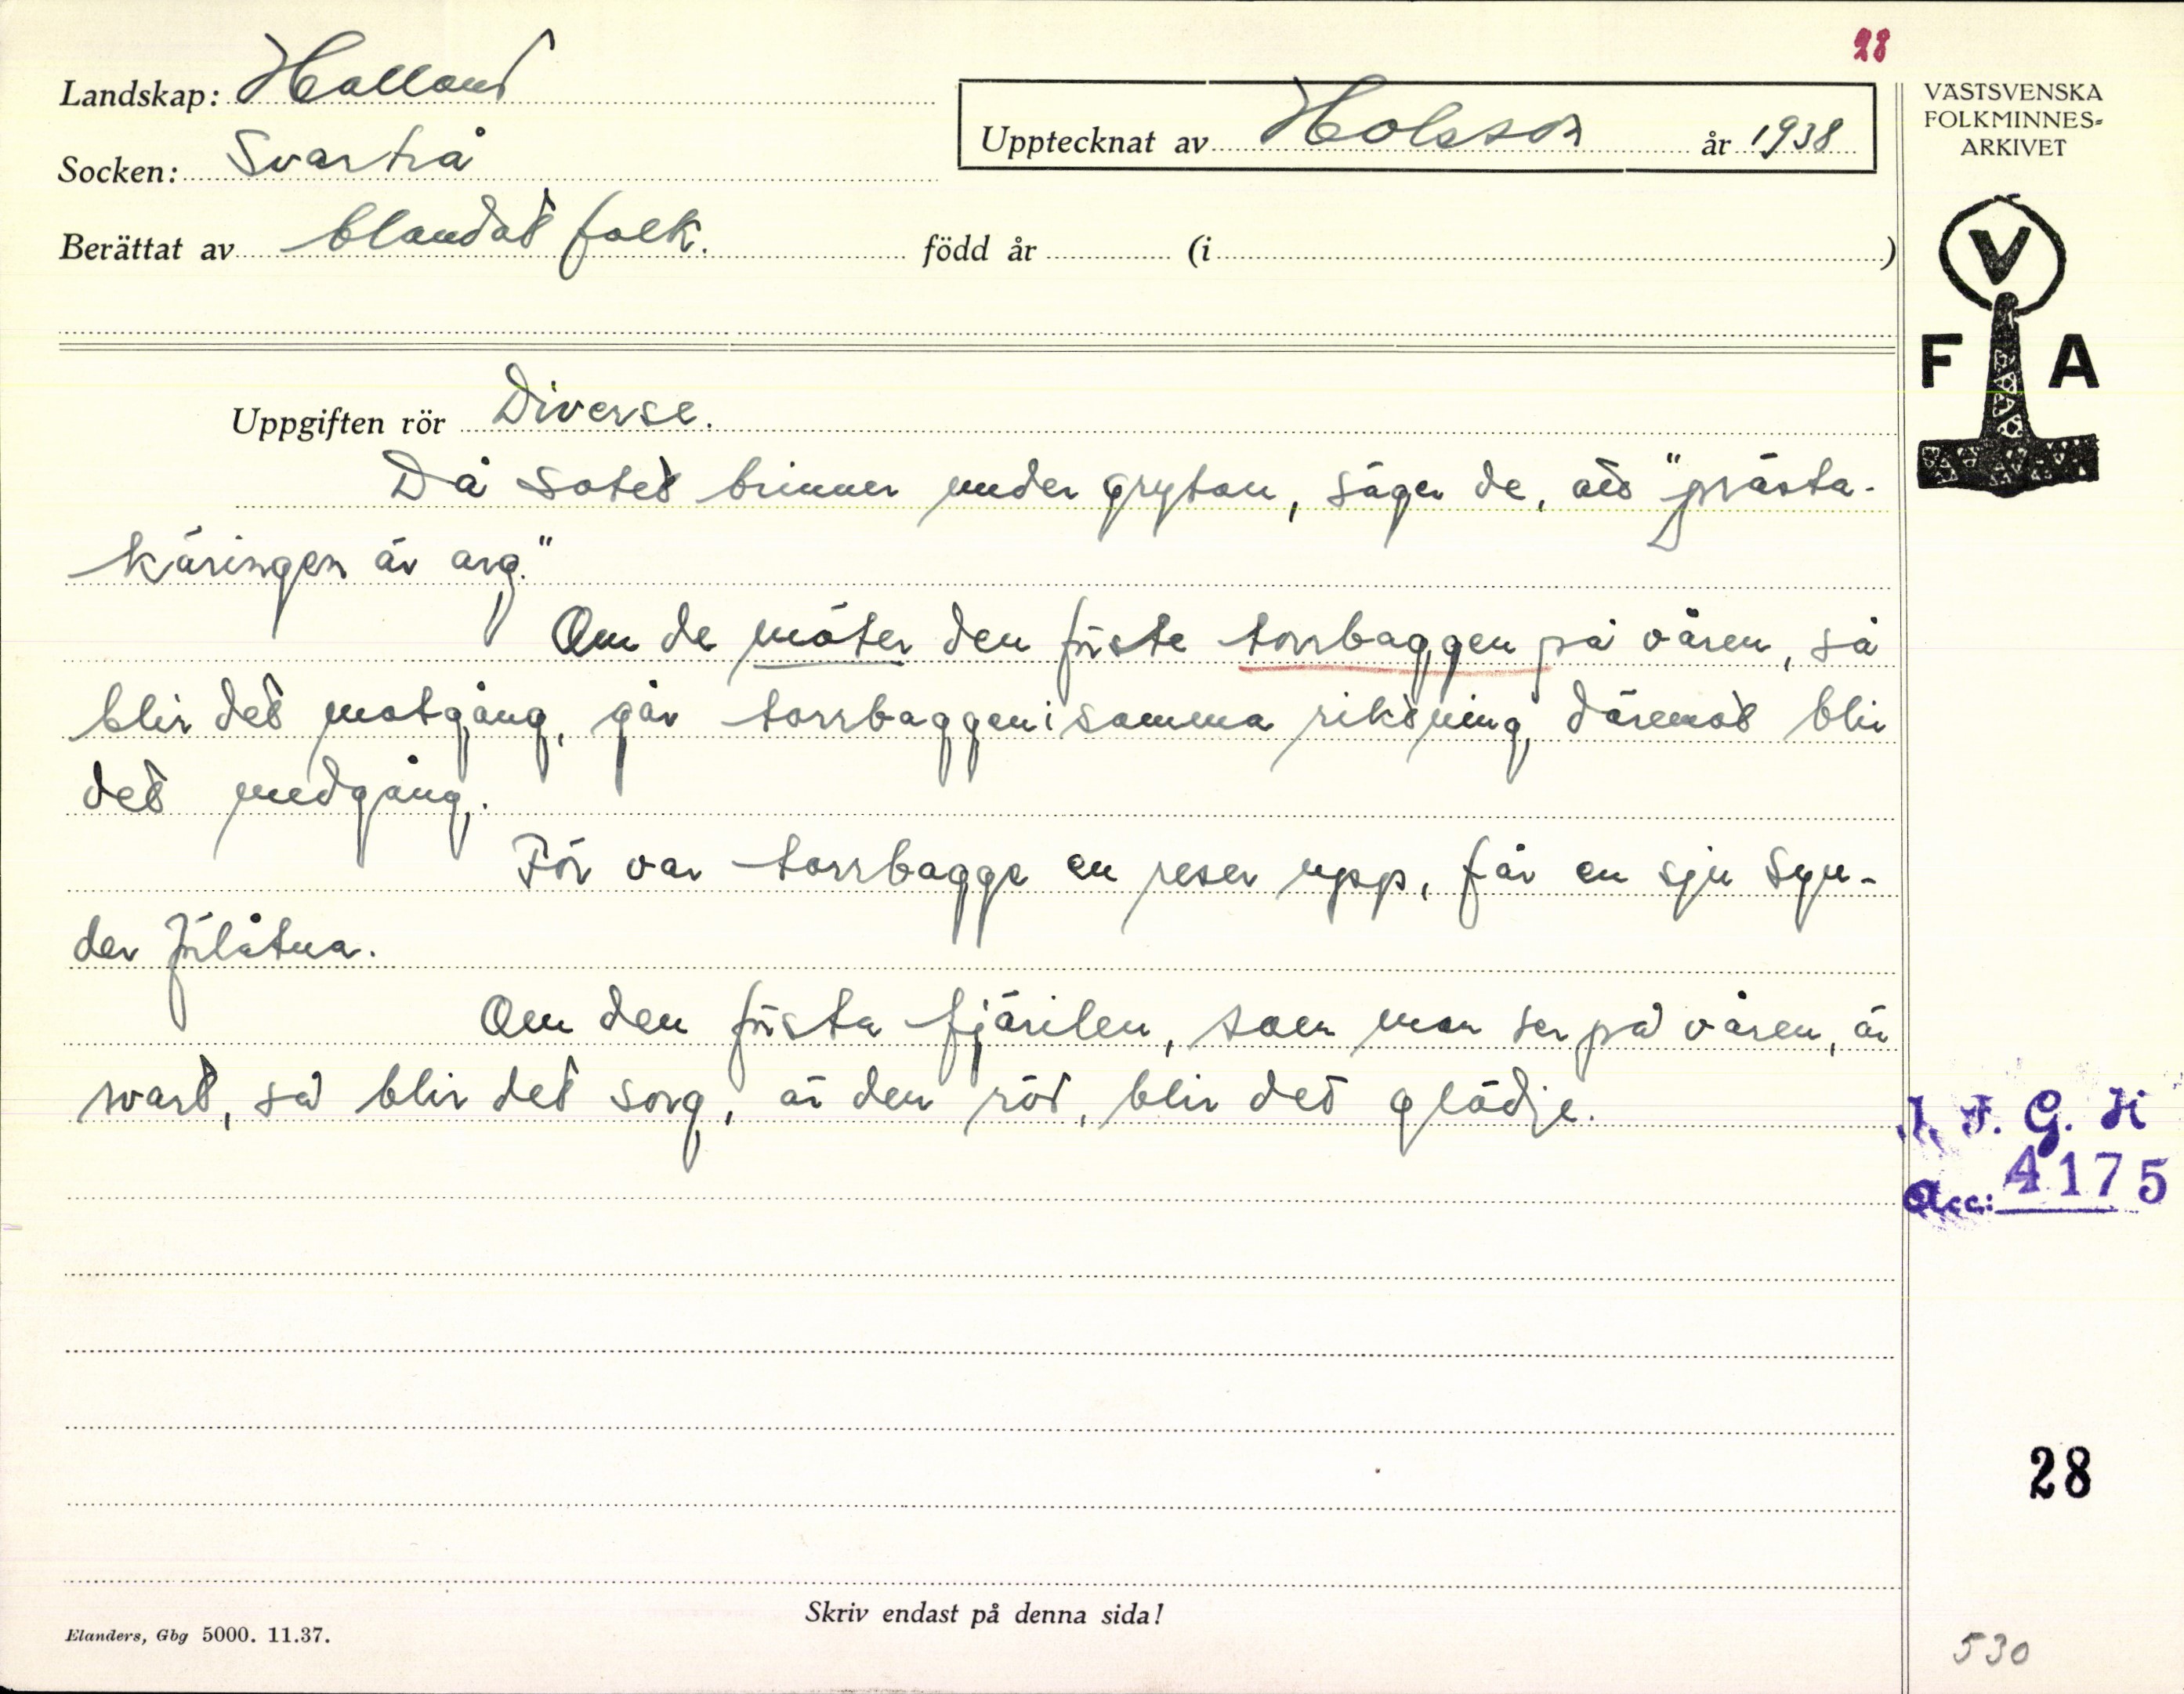 28
Landskap: Halland
Socken: Svartrå
Berättat av blandat folk. född år (i )
Upptecknat av Holsson år 1938
VÄSTSVENSKA
FOLKMINNES-
ARKIVET
V
F A
Uppgiften rör Diverse.
Då sotet brinner under grytan, säger de, att "prästa-
käringen är arg."
Om de möter den förste torrbaggen på våren, så
blir det motgång, går torrbaggen i samma riktning, däremot blir
det medgång.
För var torrbagge en reser upp, får en sju syn-
der förlåtna.
Om den första fjärilen, som man ser på våren, är
svart, så blir det sorg, är den röd, blir det glädje.
I. F. G. H
Acc: 4175
28
Skriv endast på denna sida!
Elanders, Gbg 5000. 11.37.
530